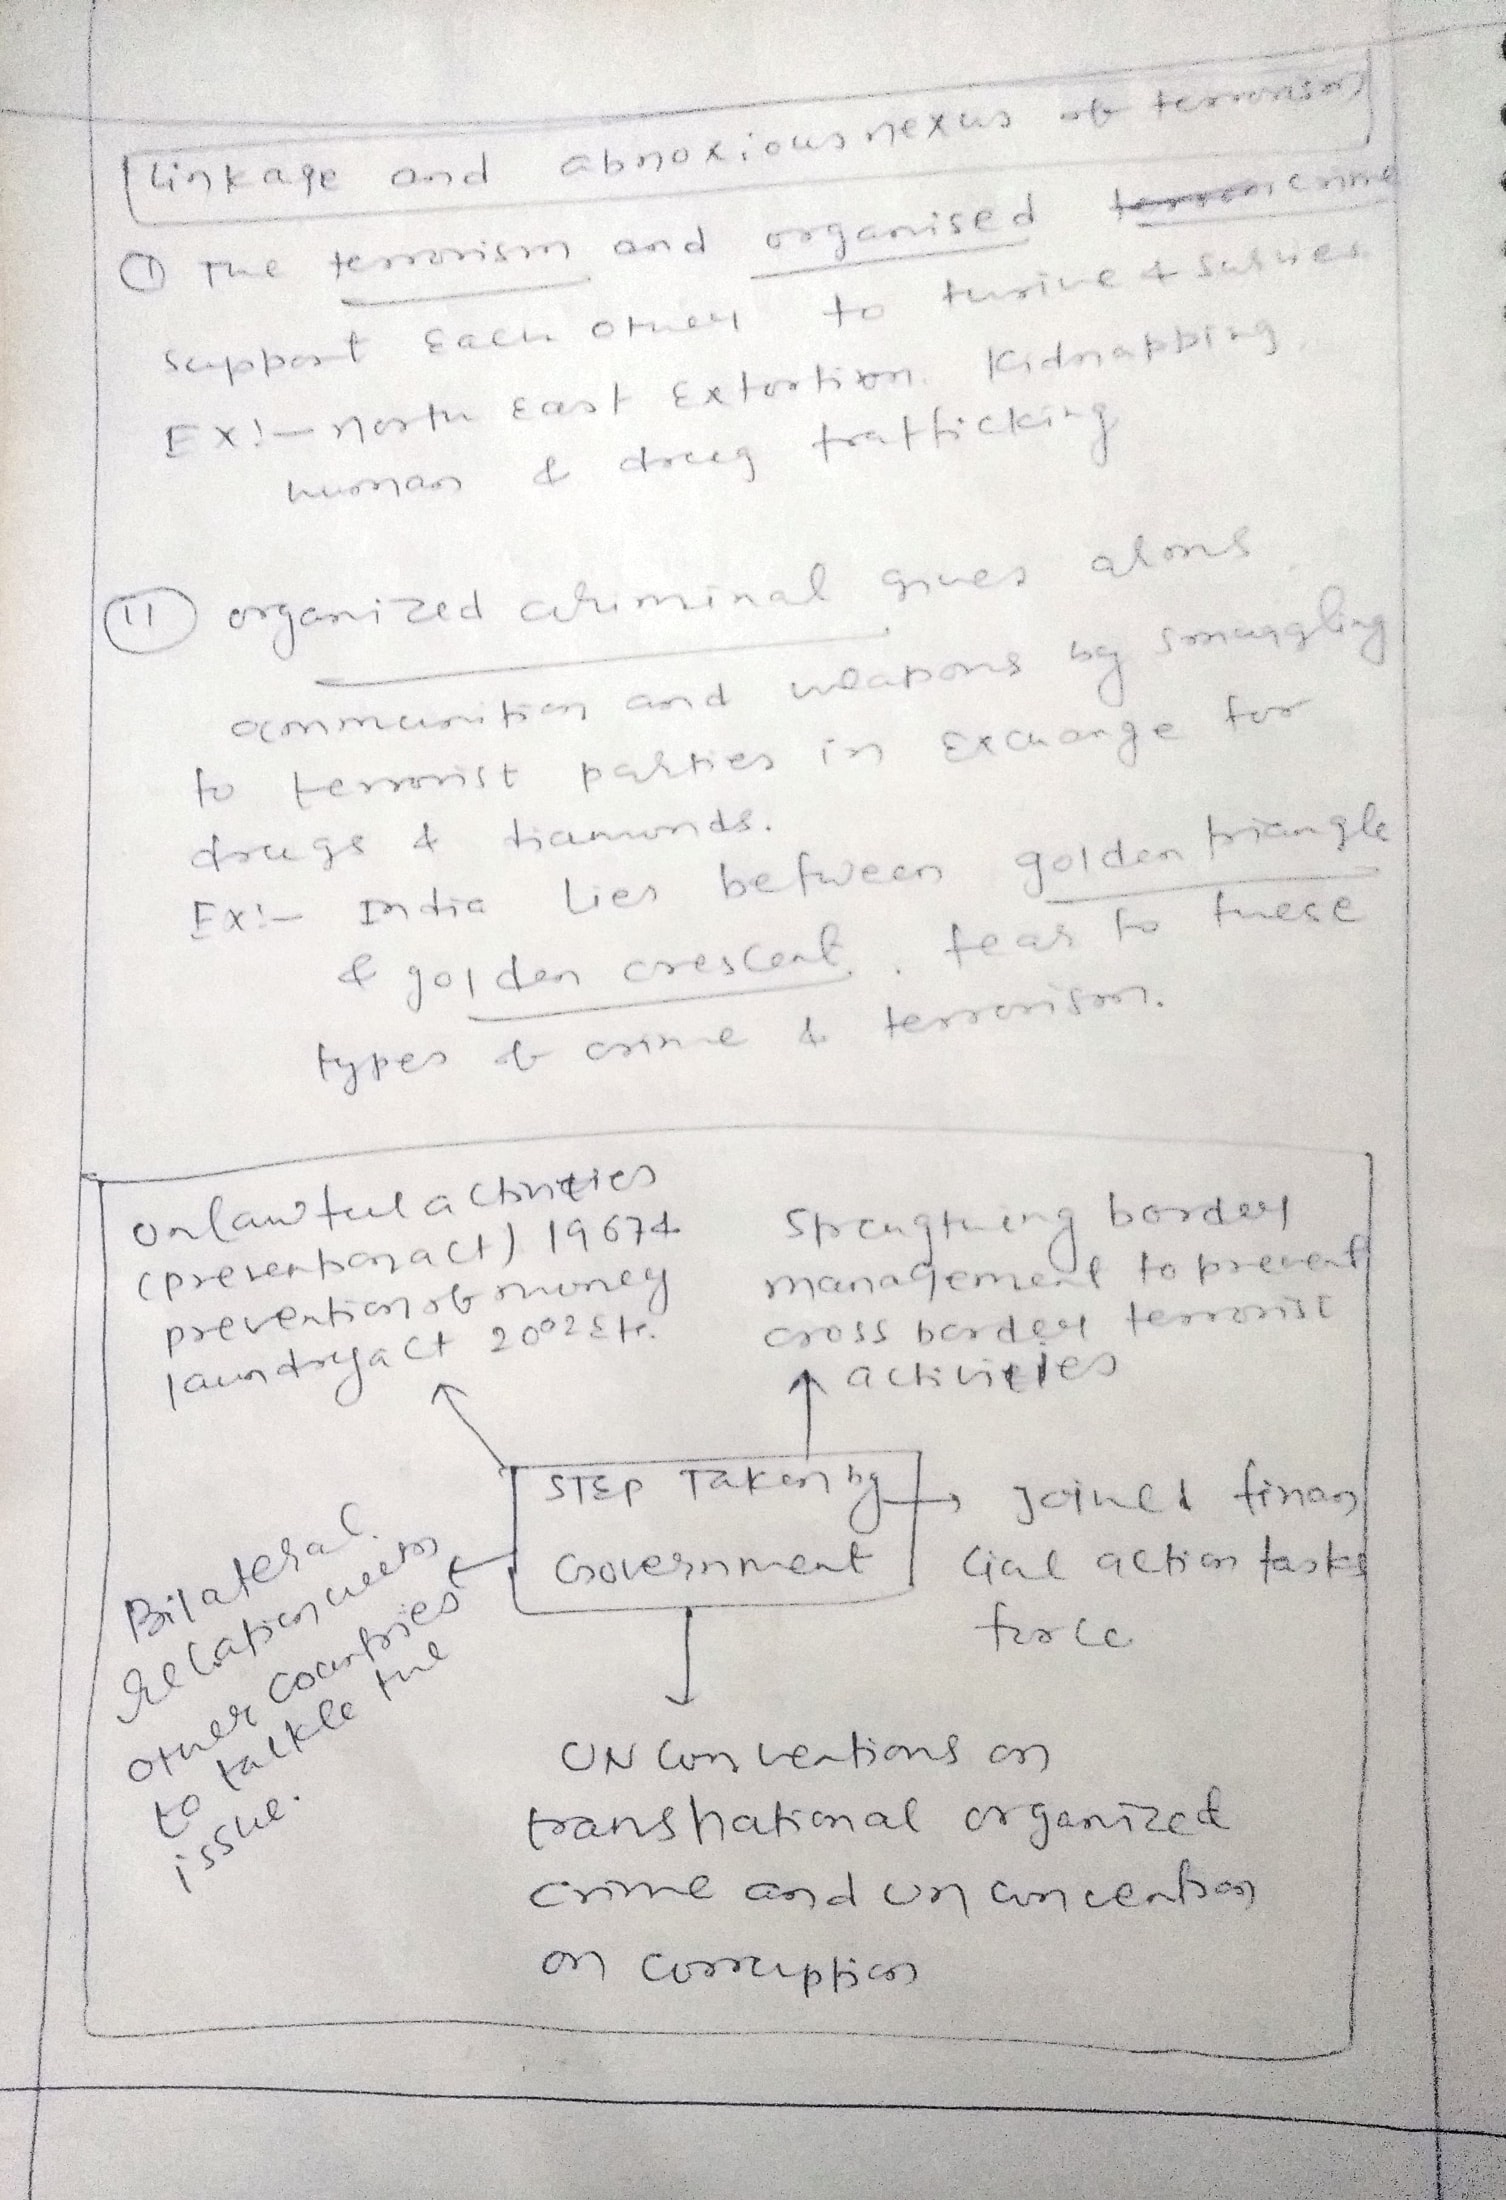 Linkage and abnoxious nexus of terrorism
① The terrorism and organised crime
support Each other to thrive &
Ex:- North East Extortion. Kidnapping,
human & drug trafficking
(11) organized criminal gives
ammunition and weapons by smuggling
to terrorist parties in Exchange for
drugs & diamonds.
Ex:- India Lies between golden triangle
& golden crescent, fear to these
types of crime & terrorism.
Unlawful activities
(prevention act) 1967 &
prevention of money
laundry act 2002 Etc.
Strengthening border
management to prevent
cross border terrorist
activities
STEP Taken by
Government
Joined finan
cial action tasks
force
Bilateral
Relation with
other countries
to talkle the
issue.
UN Conventions on
transnational organized
crime and un convention
on corruption